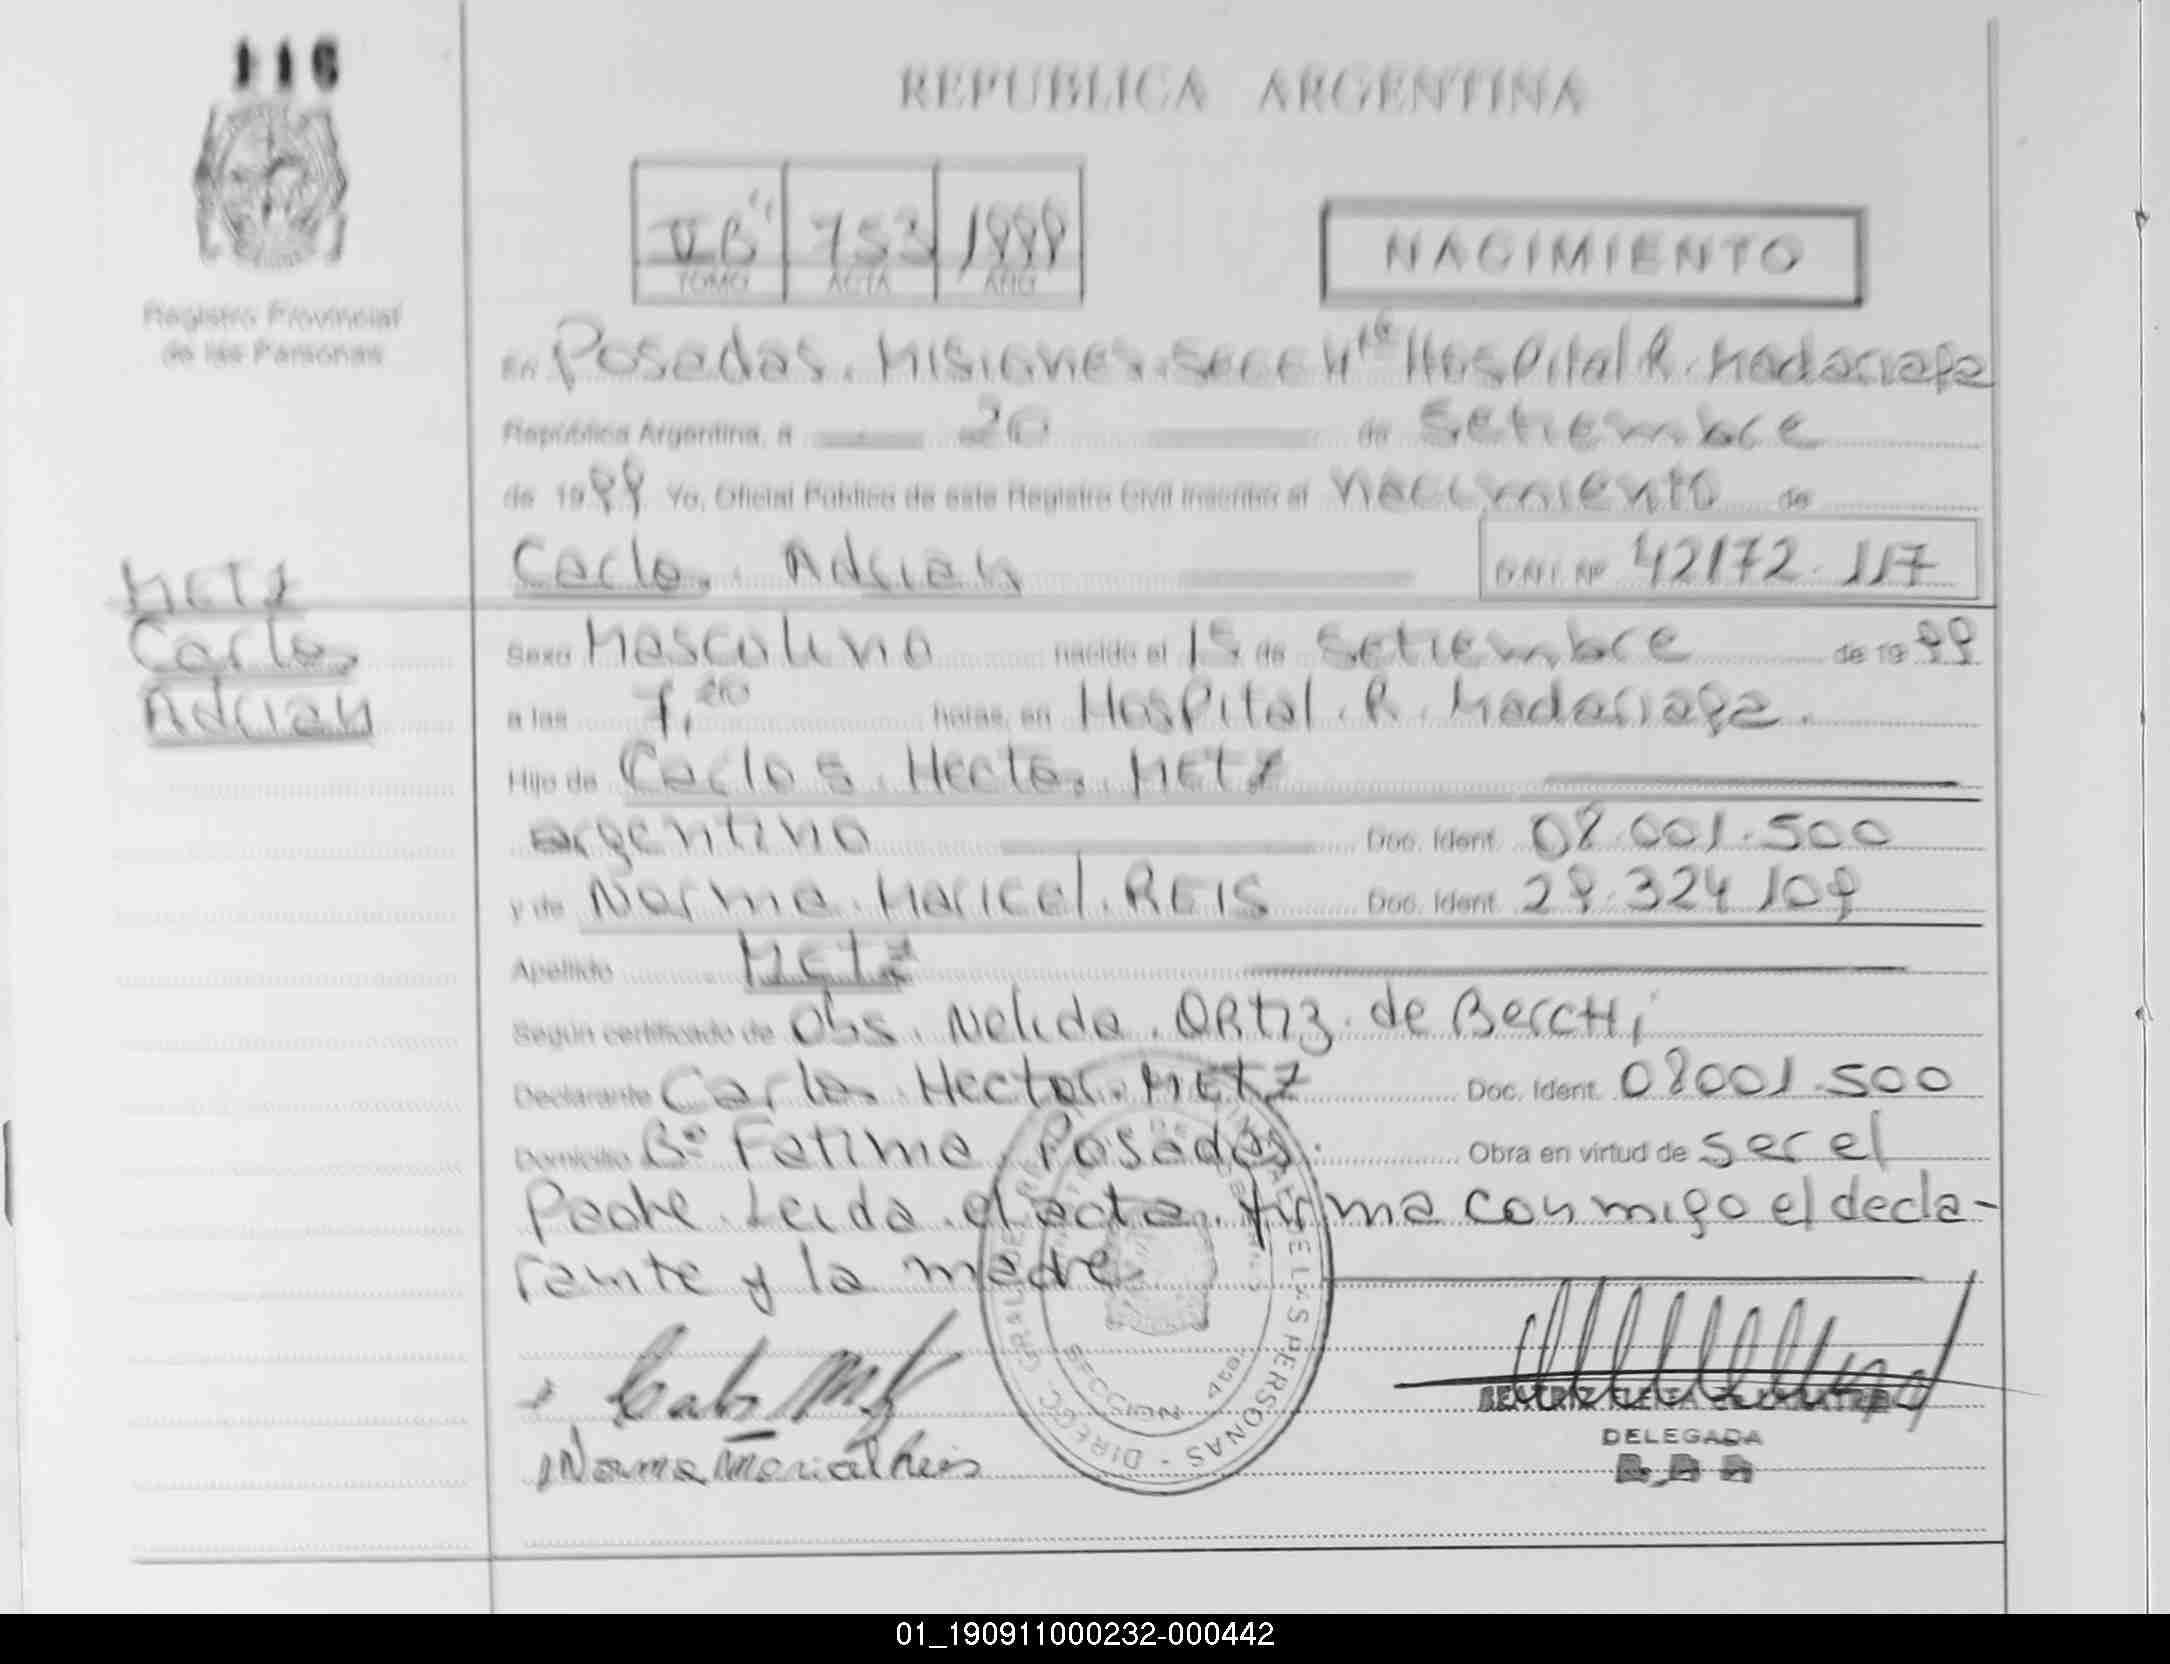 116
REPUBLICA ARGENTINA
753 1999
TOMO ACTA AÑO
NACIMIENTO
Registro Provincial
de las Personas
En Posadas. Misiones. Secc 4ta Hospital R. Madariaga
República Argentina, a 20 de Setiembre
de 1999 Yo, Oficial Público de este Registro Civil inscribo el nacimiento de
Carlos Adrian D.N.I. Nº 42172.117
METZ
Carlos
Adrian
Sexo Masculino nacido el 15 de Setiembre de 1999
a las 7, horas, en Hospital. R. Madariaga.
Hijo de Carlos. Hector. METZ
argentino Doc. Ident. 08.001.500
y de Norma. Maricel. REIS Doc. Ident. 29.324 109
Apellido METZ
Según certificado de Obs. Nelida. ORtiz. de
Declarante Carlos. Hector. METZ Doc. Ident. 08001.500
Domicilio Bº Fatima. Posadas. Obra en virtud de ser el
Padre. Leida. el acta. firma conmigo el decla-
rante y la madre.
Norma Maricel Reis
DIRECC. GRAL DE REG. PROVINCIAL DE LAS PERSONAS
DELEGADA
01_190911000232-000442